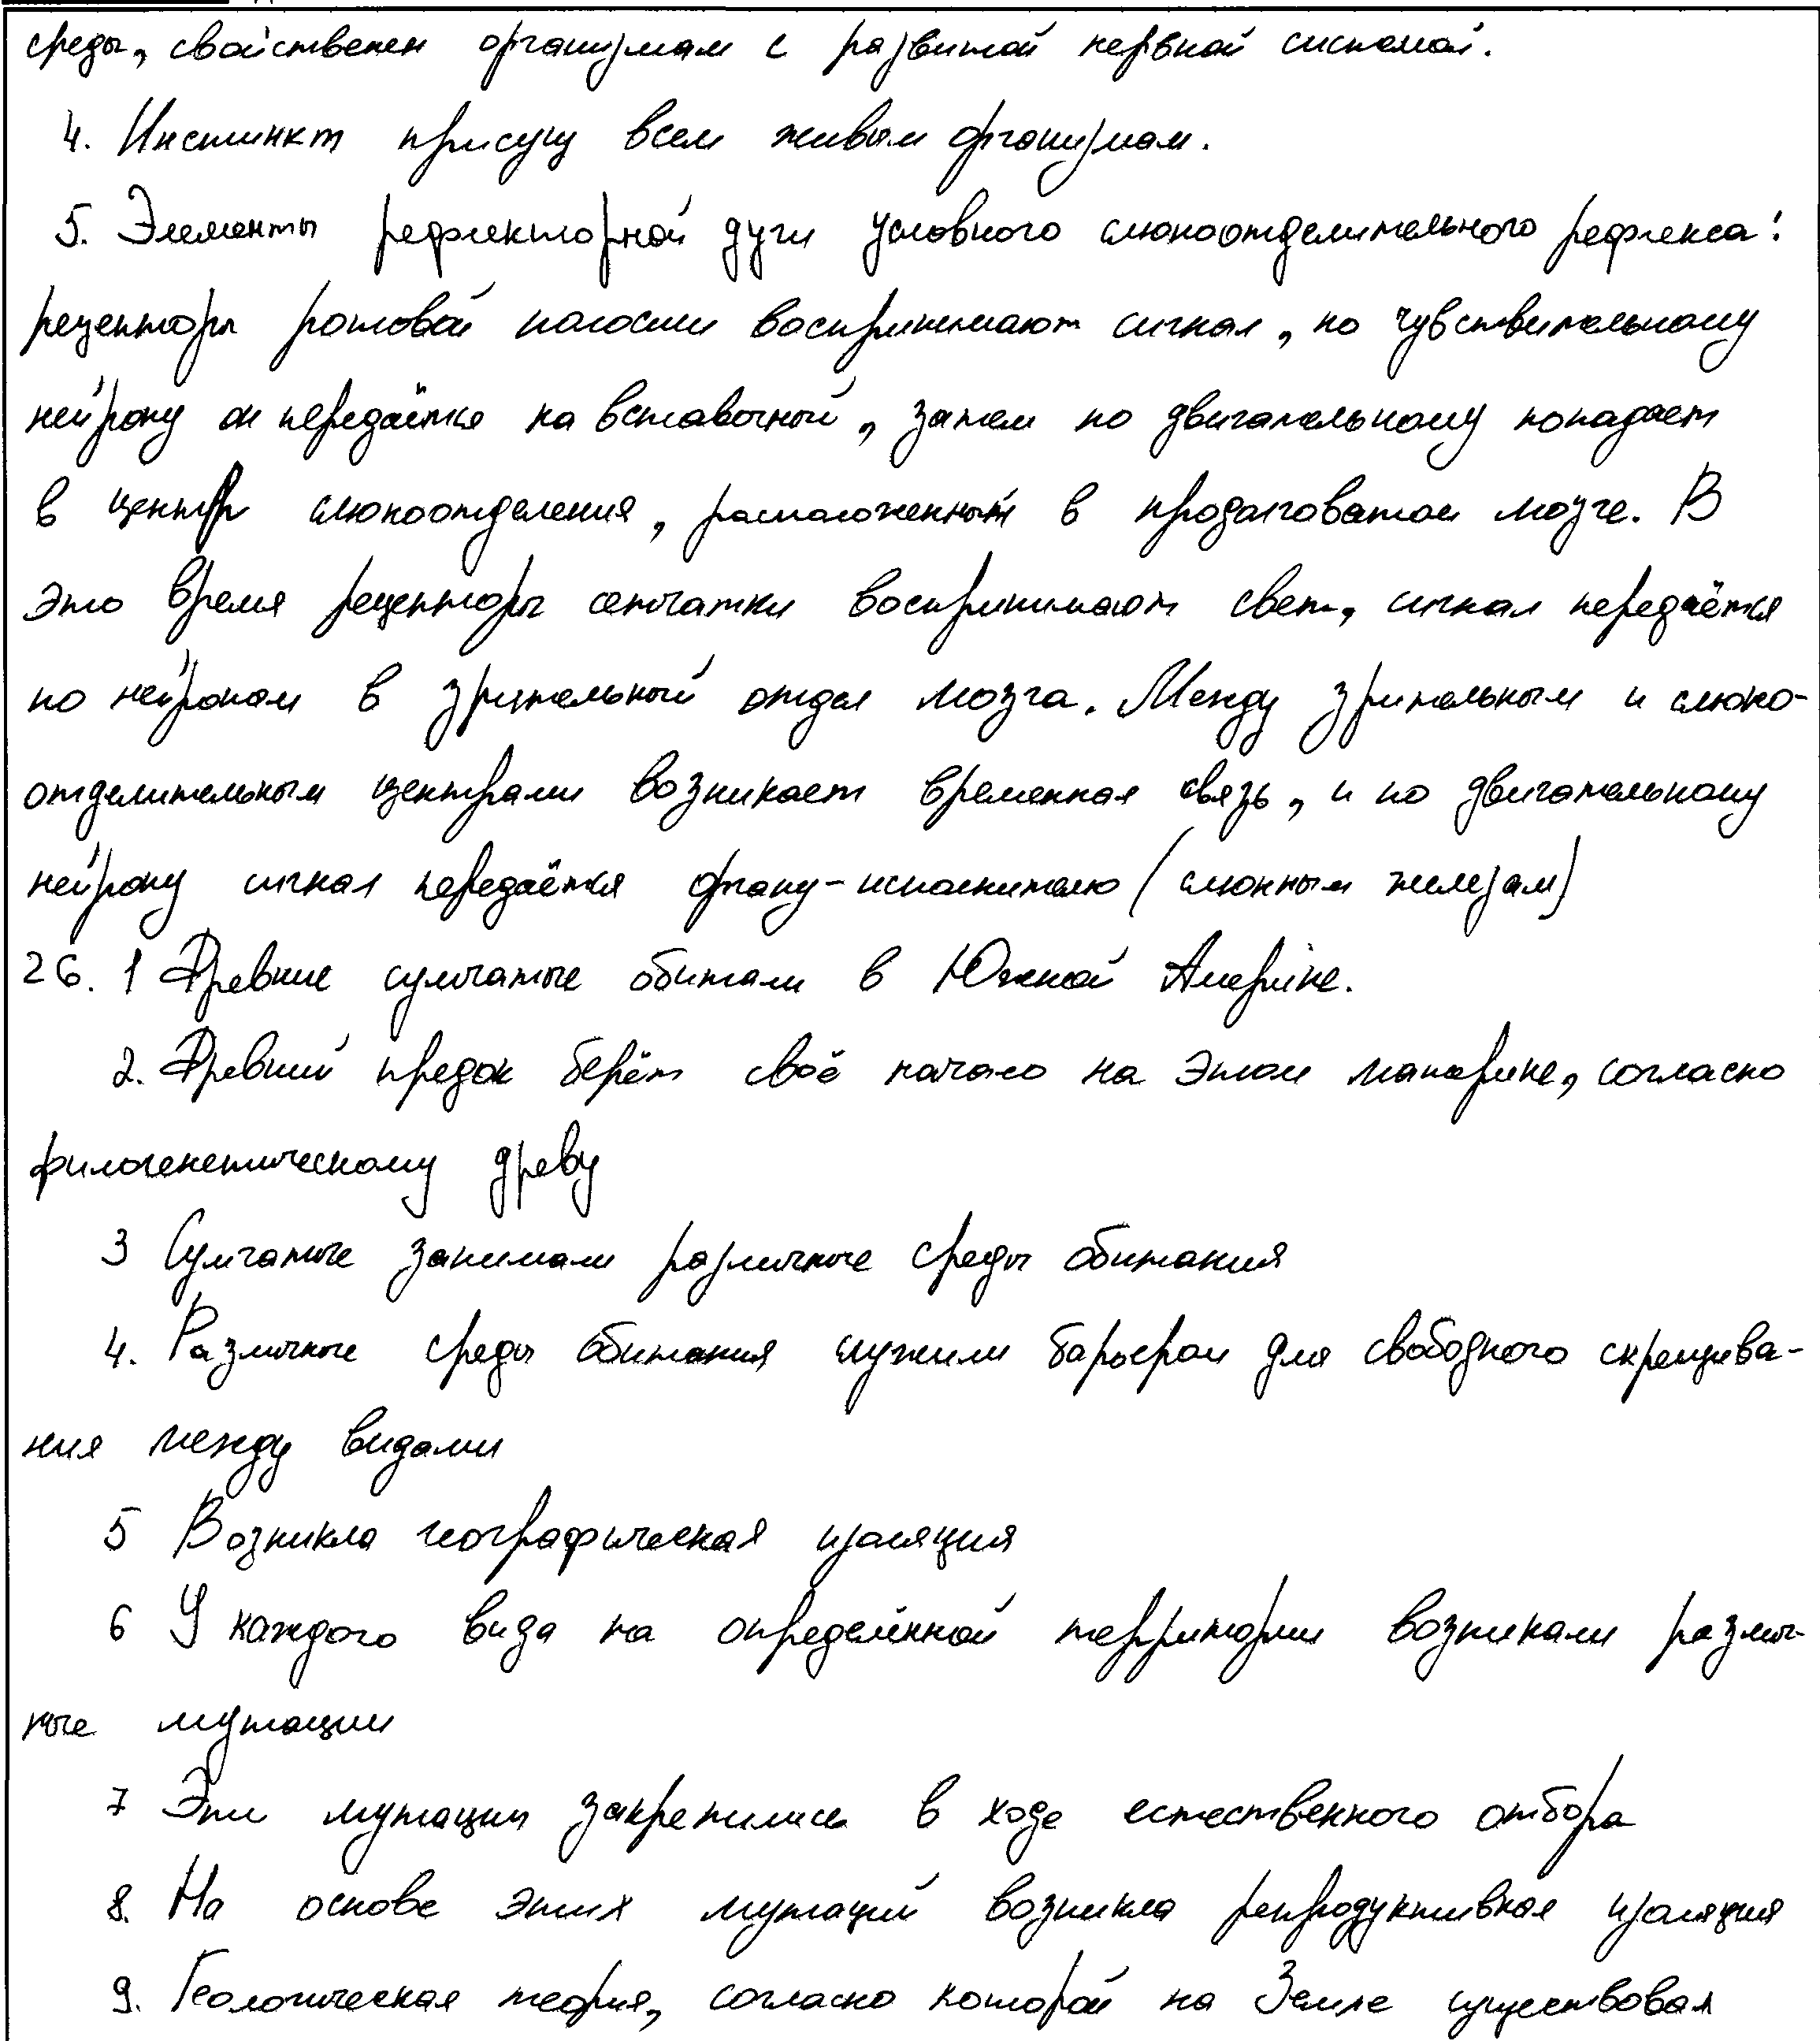 среды, свойственен организмам с развитой нервной системой.
4. Инстинкт присущ всем живым организмам.
5. Элементы рефлекторной дуги условного слюноотделительного рефлекса:
рецепторы ротовой полости воспринимают сигнал, по чувствительному
нейрону он передаётся на вставочный, затем по двигательному попадает
в центр слюноотделения, расположенный в продолговатом мозге. В
это время рецепторы сетчатки воспринимают свет, сигнал передаётся
по нейронам в зрительный отдел мозга. Между зрительным и слюно-
отделительным центрами возникает временная связь, и по двигательному
нейрону сигнал передаётся органу-исполнителю (слюнным железам)
26. 1 Древние сумчатые обитали в Южной Америке.
2. Древний предок берёт своё начало на этом материке, согласно
филогенетическому древу
3 Сумчатые занимали различные среды обитания
4. Различные среды обитания служили барьером для свободного скрещива-
ния между видами
5 Возникла географическая изоляция
6 У каждого вида на определённой территории возникали различ-
ные мутации
7 Эти мутации закрепились в ходе естественного отбора
8. На основе этих мутаций возникла репродуктивная изоляция
9. Геологическая теория, согласно которой на Земле существовал